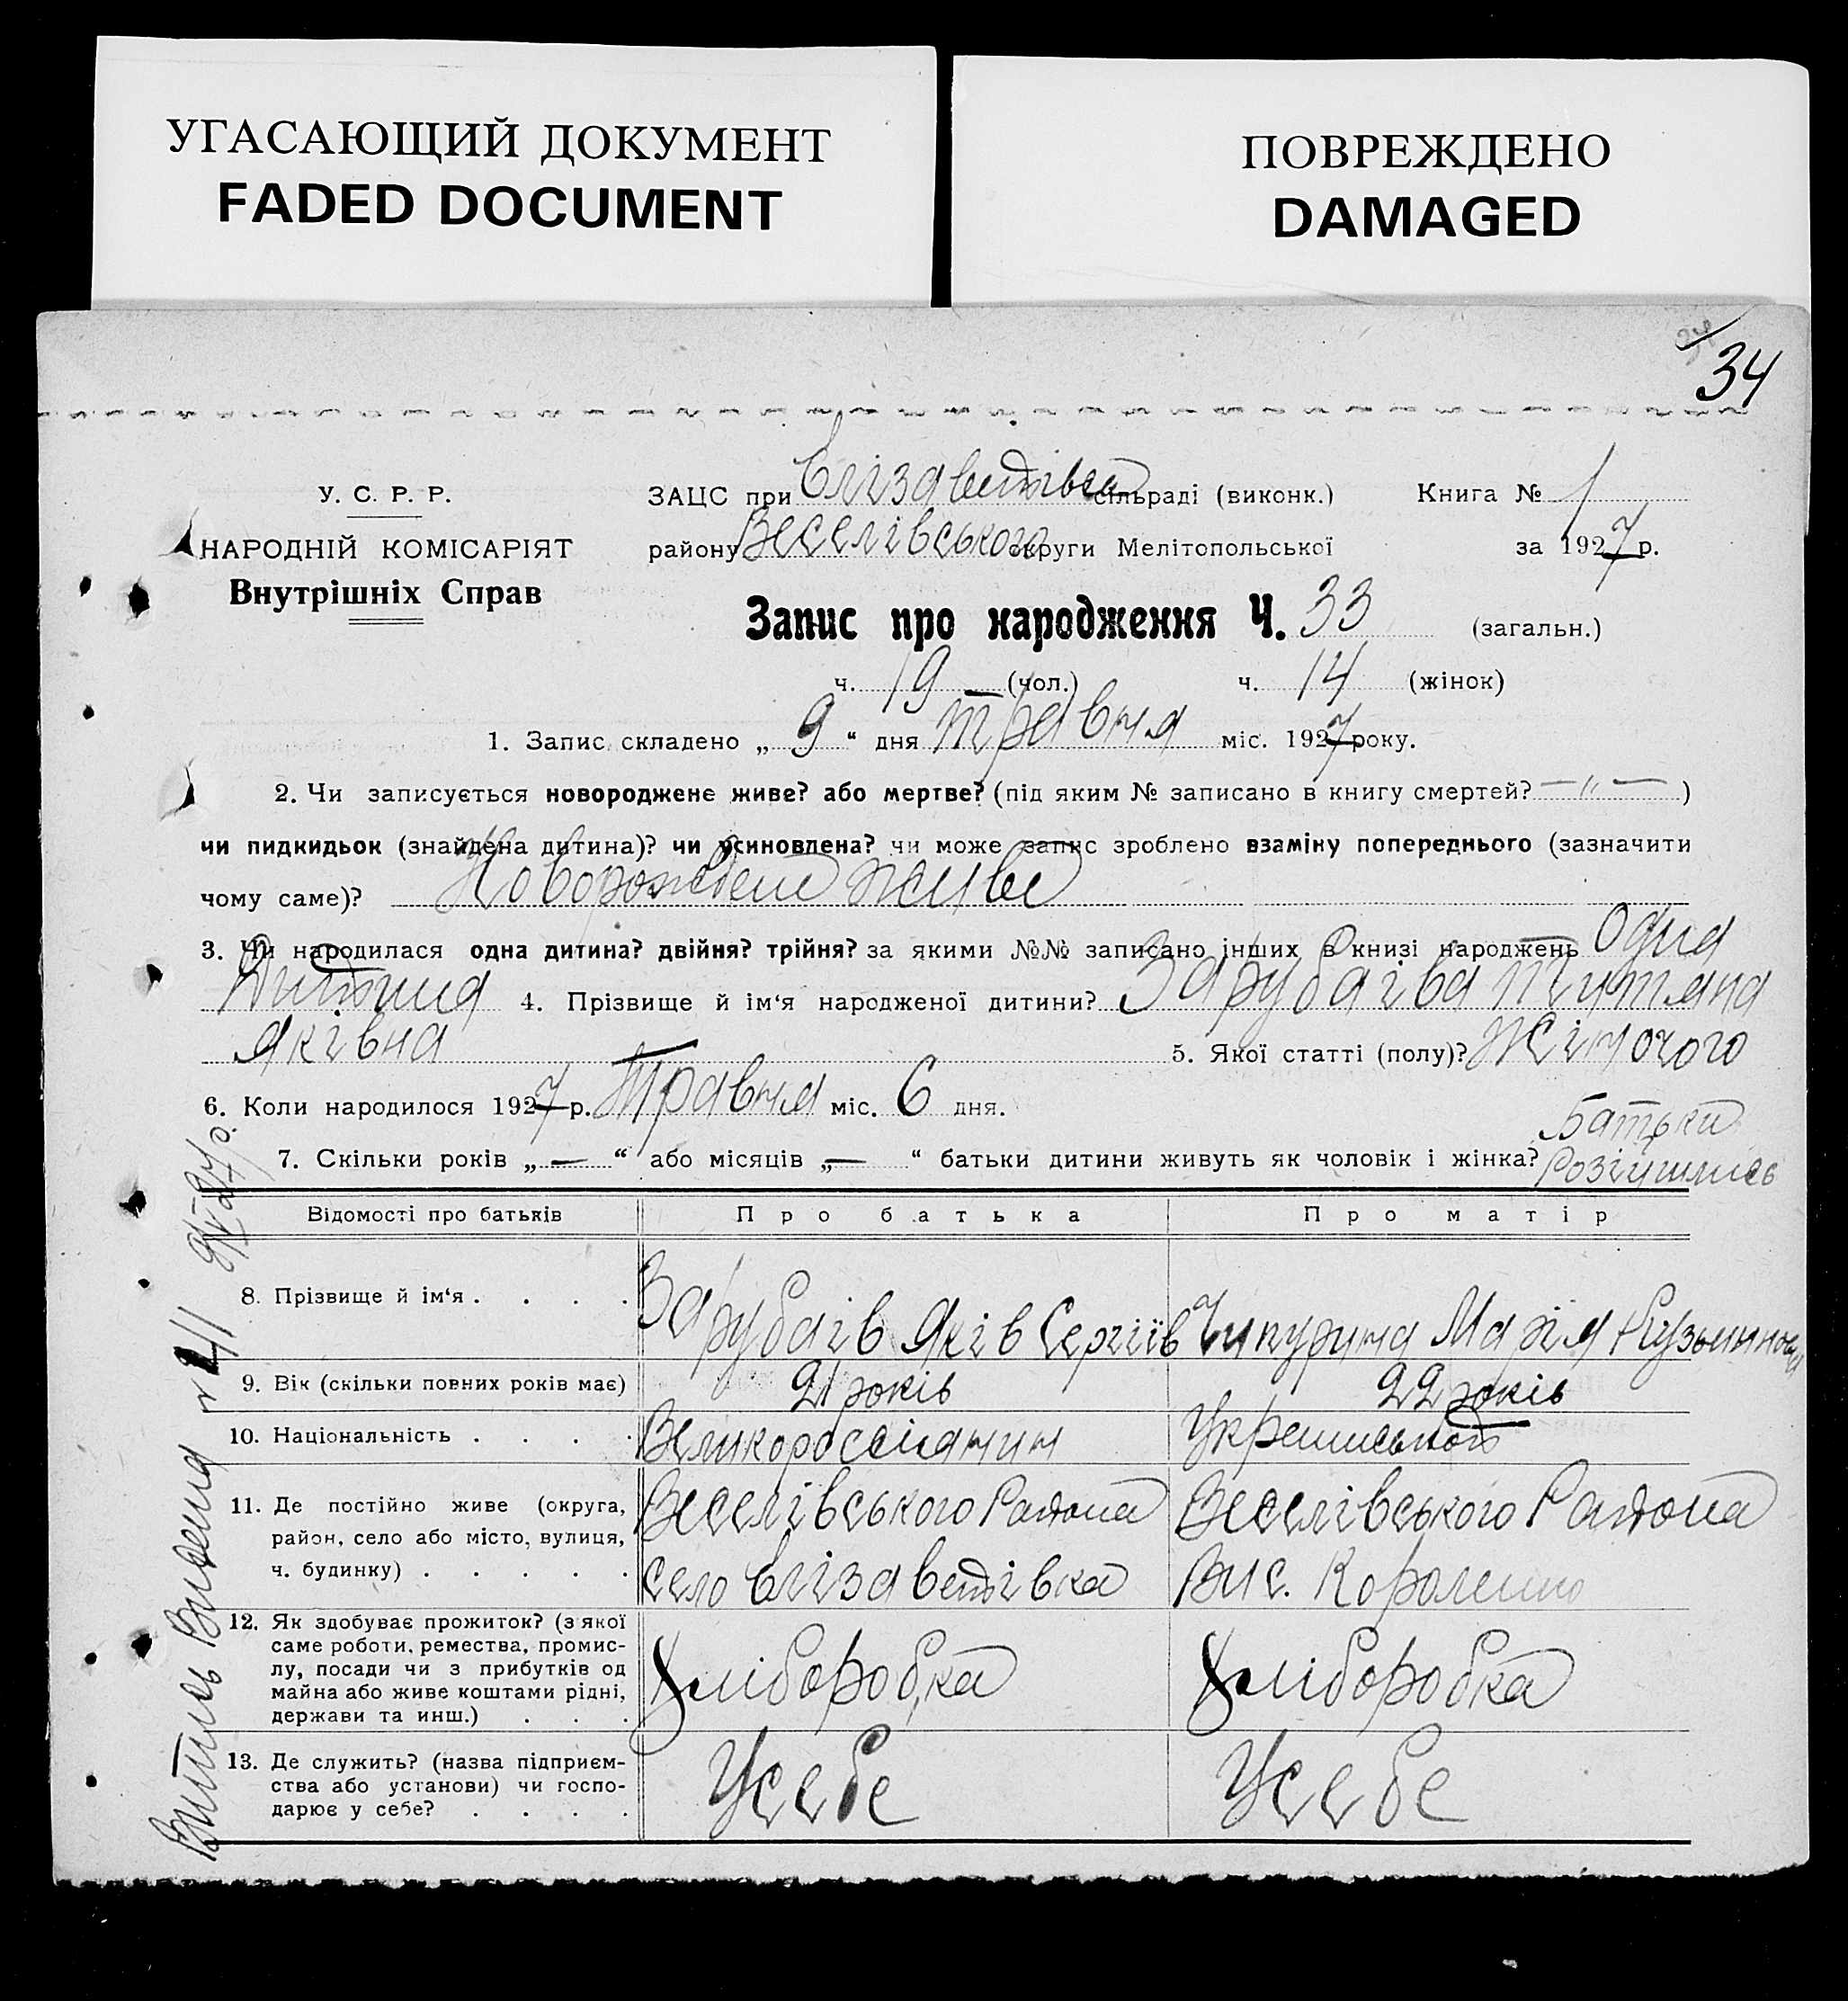 УГАСАЮЩИЙ ДОКУМЕНТ
FADED DOCUMENT
ПОВРЕЖДЕНО
DAMAGED
34
У. С. Р. Р.
НАРОДНІЙ КОМІСАРІЯТ
Внутрішніх Справ
ЗАЦС при Єлізаветівській сільраді (виконк.) Книга № 1
району Веселівського округи Мелітопольської за 1927 р.
Запис про народження Ч. 33 (загальн.)
ч. 19 — (чол.) ч. 14 (жінок)
1. Запис складено „ 9 “ дня травня міс. 1927 року.
2. Чи записується новороджене живе? або мертве? (під яким № записано в книгу смертей? — „ — )
чи пидкидьок (знайдена дитина)? чи усиновлена? чи може запис зроблено взаміну попереднього (зазначити
чому саме)? Новорождене живе
3. Чи народилася одна дитина? двійня? трійня? за якими №№ записано інших в книзі народжень Одна
Дитина 4. Прізвище й ім‘я народженої дитини? Зарубаіва Титяна
Яківна 5. Якої статті (полу)? Жіночого
6. Коли народилося 1927 р. Травня міс. 6 дня.
7. Скільки років „ — “ або місяців „ — “ батьки дитини живуть як чоловік і жінка? Батьки
Розійшлись
Відомості про батьків Про батька Про матір
8. Прізвище й ім‘я . . . . Зарубаів Яків Сергіїв Чипурина Марія Кузьминовна
9. Вік (скільки повних років має) 21 років 22 років
10. Національність . . . . Великороссиянин
11. Де постійно живе (округа, район, село або місто, вулиця, ч. будинку) . . . . . Веселівського Района село Єлізаветівка Веселівського Района Вис.
12. Як здобуває прожиток? (з якої саме роботи, ремества, промислу, посади чи з прибутків од майна або живе коштами рідні, держави та инш.) . . . Хліборобка Хліборобка
13. Де служить? (назва підприємства або установи) чи господарює у себе? . . . . Усебе Усебе